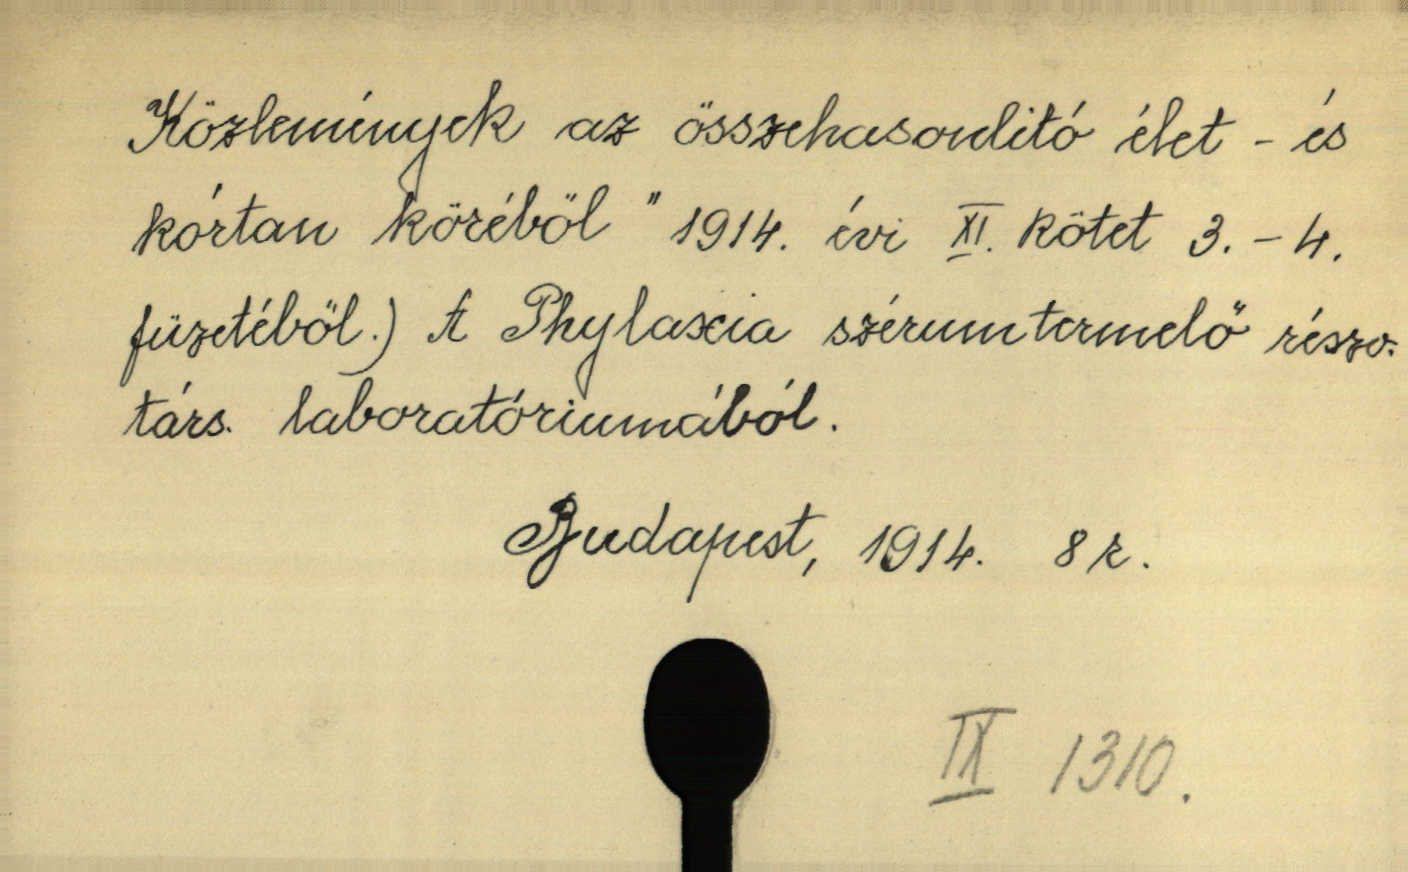 Közlemények az összehasonlitó élet - és
kórtan köréből " 1914. évi XI. kötet 3. - 4.
füzetéből.) A Phylaxia szérumtermelő részv.
társ. laboratóriumából.
Budapest, 1914. 8 r.
IX 1310.